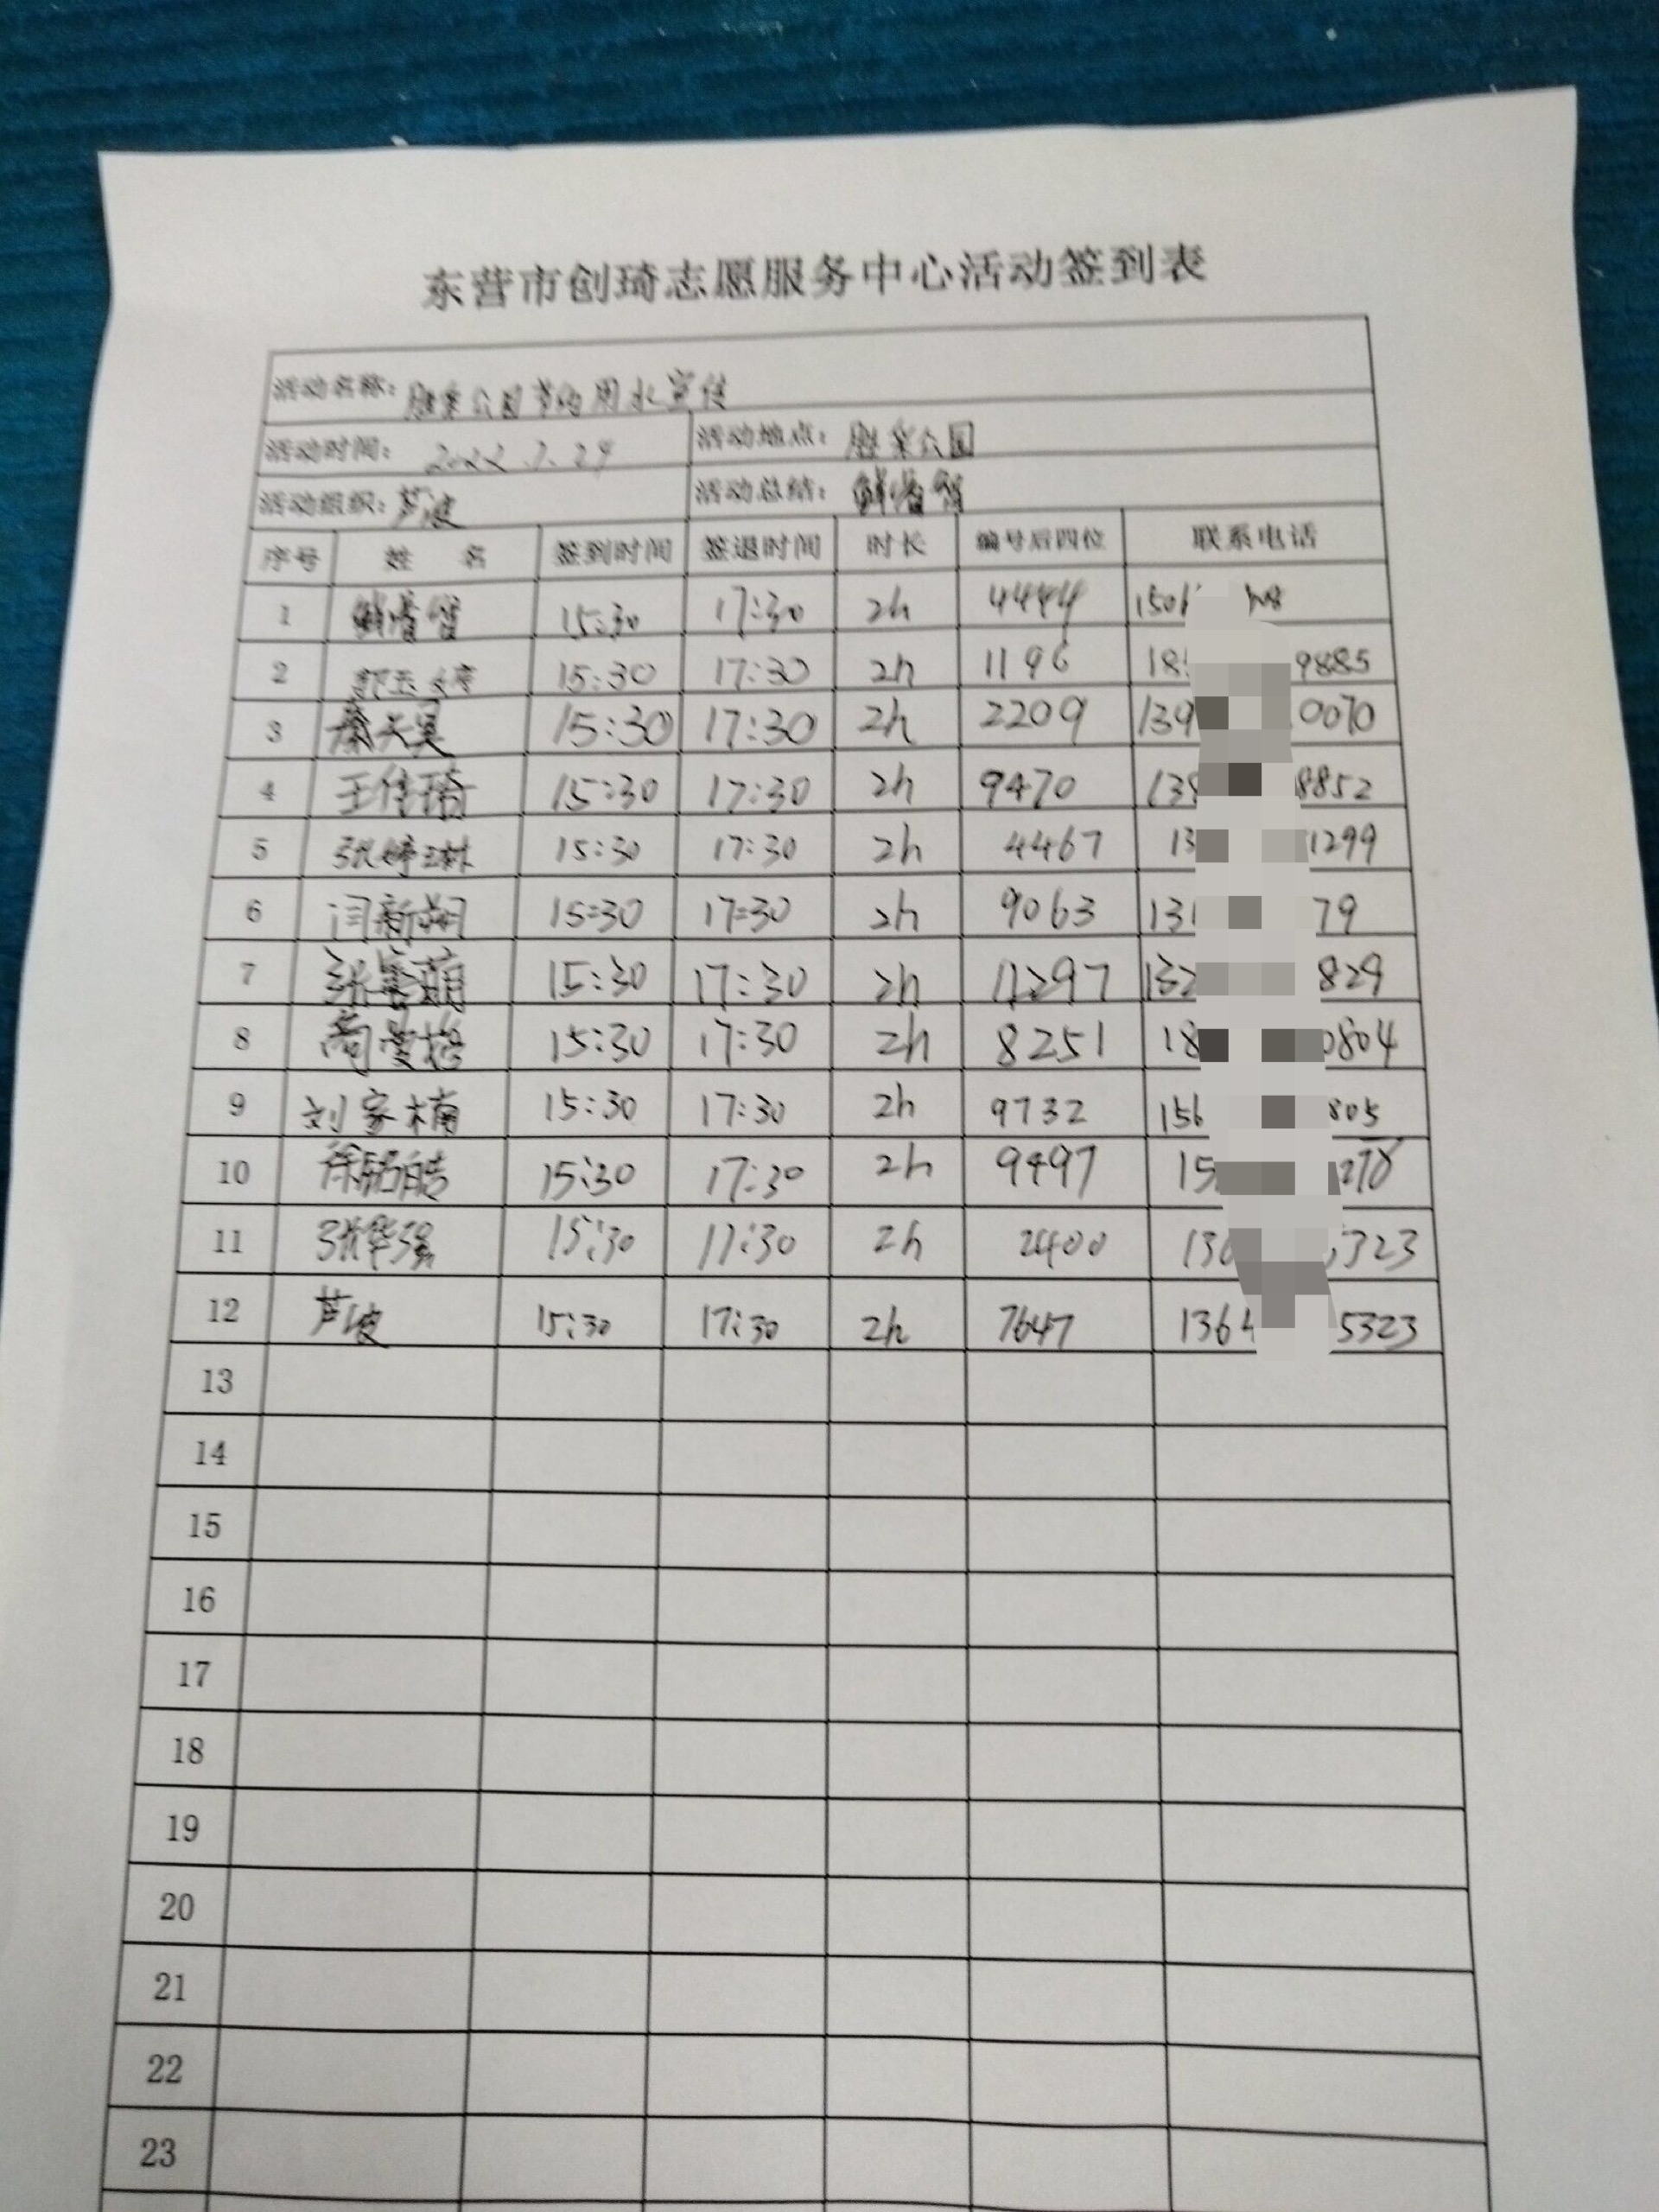 东营市创琦志愿服务中心活动签到表
活动名称：胜景公园节约用水宣传
活动时间：2022.7.29 活动地点：胜景公园
活动组织：芦波 活动总结：
序号 姓 名 签到时间 签退时间 时长 编号后四位 联系电话
1 15:30 17:30 2h 4444 150
2 15:30 17:30 2h 1196 18 9885
3 昊 15:30 17:30 2h 2209 139 0070
4 王佳琦 15:30 17:30 2h 9470 138 8852
5 张婷琳 15:30 17:30 2h 4467 13 1299
6 闫新翔 15:30 17:30 2h 9063 131 79
7 张 萌 15:30 17:30 2h 1297 132 829
8 15:30 17:30 2h 8251 18 0804
9 刘家楠 15:30 17:30 2h 9732 156 805
10 徐 皓 15:30 17:30 2h 9497 15 270
11 张华强 15:30 17:30 2h 2400 130 5323
12 芦波 15:30 17:30 2h 7647 1364 5323
13
14
15
16
17
18
19
20
21
22
23